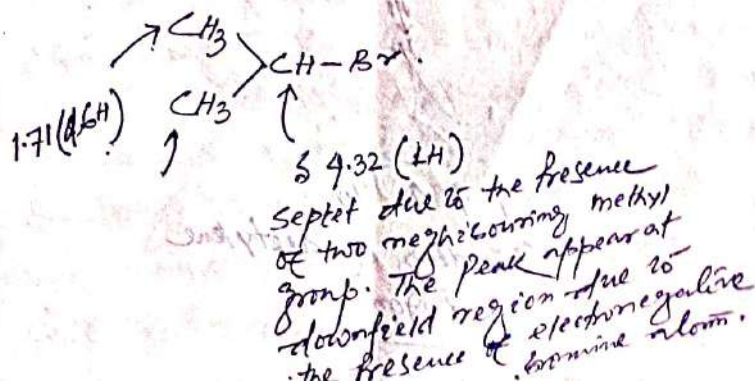 CH3
CH - Br.
CH3
1.71 (6H)
δ 4.32 (1H)
septet due to the presence
of two neighbouring methyl
group. The Peak appear at
downfield region due to
the presence of electronegative
bromine atom.